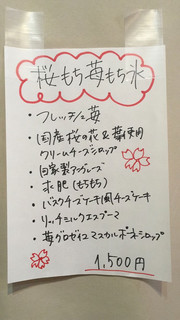 桜もち苺もち氷
・フレッシュ苺
・国産桜の花&葉使用
クリームチーズシロップ
・自家製アングレーズ
・求肥(もちもち)
・バスクチーズケーキ風チーズケーキ
・リッチミルクエスプーマ
・苺グロゼイユマスカルポーネシロップ
1,500円